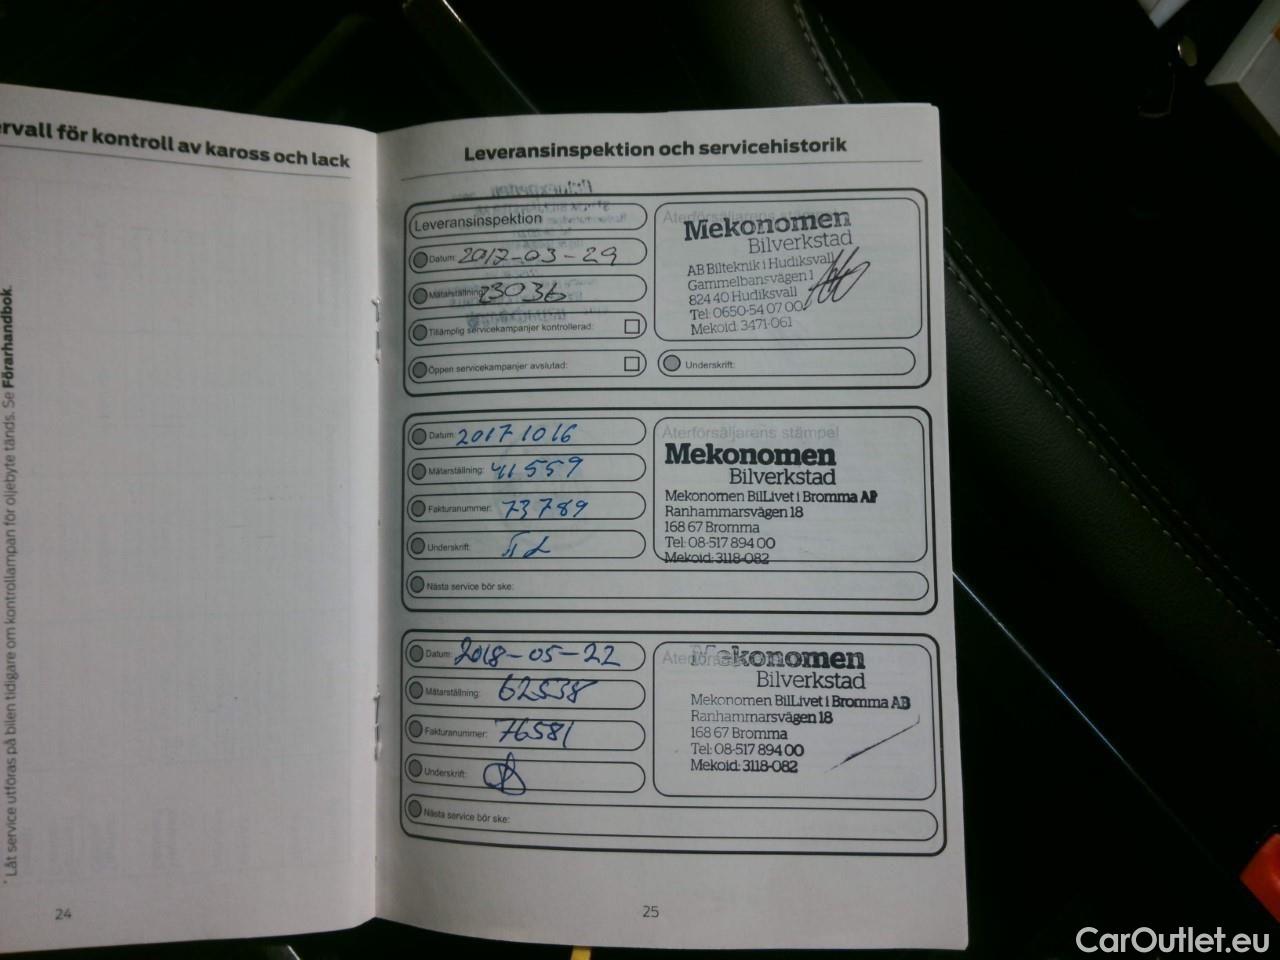 rvall för kontroll av kaross och lack
* Låt service utföras på bilen tidigare om kontrollampan för oljebyte tänds. Se Förarhandbok.
24
Leveransinspektion och servicehistorik
Leveransinspektion
Datum: 2017-03-29
Mätarställning: 23036
Tillämplig servicekampanjer kontrollerad:
Öppen servicekampanjer avslutad:
Återförsäljarens stämpel
Mekonomen
Bilverkstad
AB Bilteknik i Hudiksvall
Gammelbansvägen 1
824 40 Hudiksvall
Tel: 0650-54 07 00
Mekoid: 3471-061
Underskrift:
Datum: 20171016
Mätarställning: 41559
Fakturanummer: 73789
Underskrift:
Återförsäljarens stämpel
Mekonomen
Bilverkstad
Mekonomen BilLivet i Bromma AB
Ranhammarsvägen 18
168 67 Bromma
Tel: 08-517 894 00
Mekoid: 3118-082
Nästa service bör ske:
Datum: 2018-05-22
Mätarställning: 62538
Fakturanummer: 76581
Underskrift:
Mekonomen
Bilverkstad
Mekonomen BilLivet i Bromma AB
Ranhammarsvägen 18
168 67 Bromma
Tel: 08-517 894 00
Mekoid: 3118-082
Nästa service bör ske:
25
CarOutlet.eu